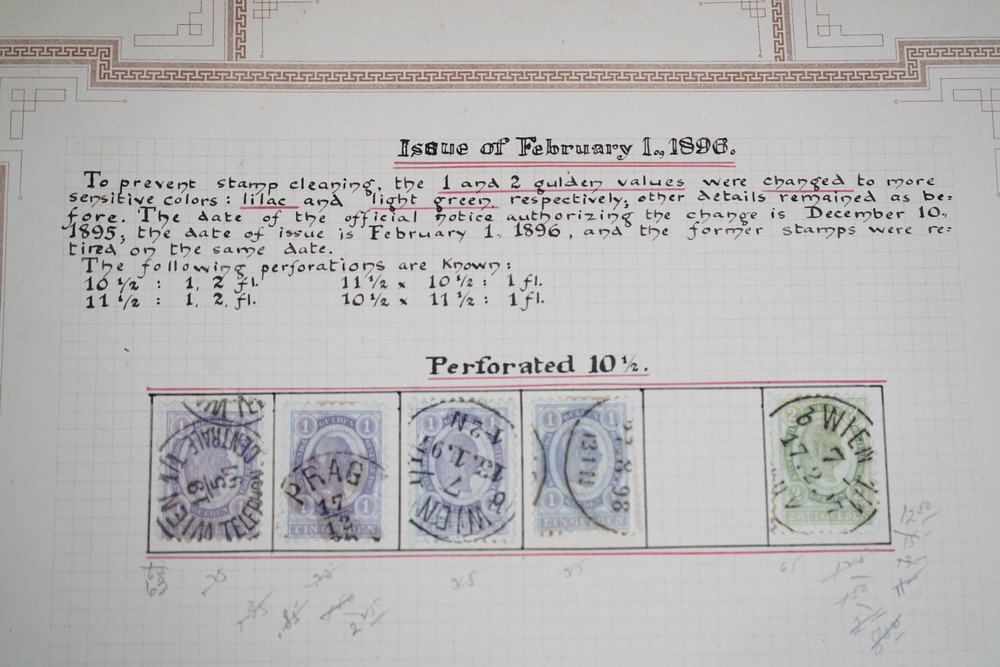 Issue of February 1., 1896.
To prevent stamp cleaning, the 1 and 2 gulden values were changed to more
sensitive colors: lilac and light green, respectively; other details remained as be=
fore. The date of the official notice authorizing the change is December 10.,
1895; the date of issue is February 1., 1896, and the former stamps were re=
tired on the same date.
The following perforations are known:
10 1/2 : 1, 2 fl. 11 1/2 x 10 1/2 : 1 fl.
11 1/2 : 1, 2, fl. 10 1/2 x 11 1/2 : 1 fl.
Perforated 10 1/2.
1 GULDEN 1
WIEN CENTRALE
1 GULDEN 1
PRAG
17
12
EIN GULDEN
1 1
8 WIEN
7
13.1.9
4-2N
1 GULDEN 1
13 1 11
8.98
6 WIEN
7
17.2
25
65